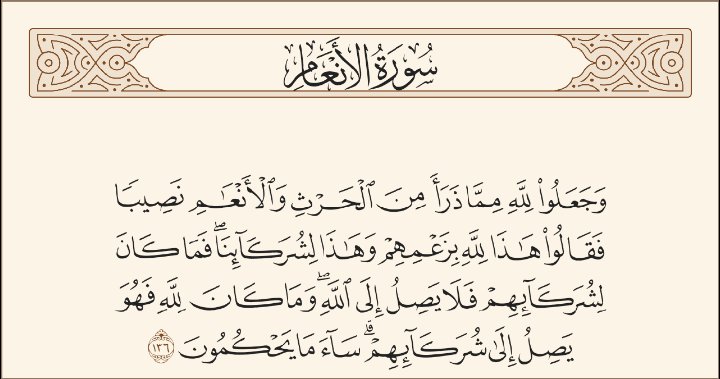 سُورَةُ الأَنْعَامِ
وَجَعَلُوا۟ لِلَّهِ مِمَّا ذَرَأَ مِنَ ٱلْحَرْثِ وَٱلْأَنْعَـٰمِ نَصِيبًا
فَقَالُوا۟ هَـٰذَا لِلَّهِ بِزَعْمِهِمْ وَهَـٰذَا لِشُرَكَآئِنَا ۖ فَمَا كَانَ
لِشُرَكَآئِهِمْ فَلَا يَصِلُ إِلَى ٱللَّهِ ۖ وَمَا كَانَ لِلَّهِ فَهُوَ
يَصِلُ إِلَىٰ شُرَكَآئِهِمْ ۗ سَآءَ مَا يَحْكُمُونَ ١٣٦